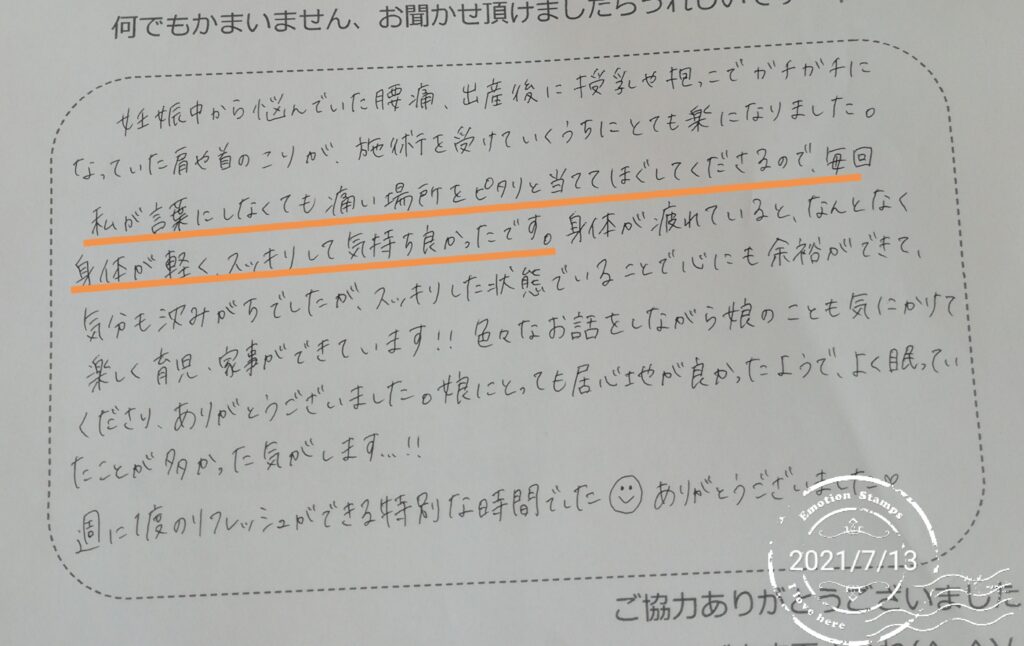 何でもかまいません、お聞かせ頂けましたらうれしいです
妊娠中から悩んでいた腰痛、出産後に授乳や抱っこでガチガチに
なっていた肩や首のこりが、施術を受けていくうちにとても楽になりました。
私が言葉にしなくても痛い場所をピタリと当ててほぐしてくださるので、毎回
身体が軽く、スッキリして気持ち良かったです。身体が疲れていると、なんとなく
気分も沈みがちでしたが、スッキリした状態でいることで心にも余裕ができて、
楽しく育児、家事ができています!!色々なお話をしながら娘のことも気にかけて
くださり、ありがとうございました。娘にとっても居心地が良かったようで、よく眠ってい
たことが多かった気がします...!!
週に1度のリフレッシュができる特別な時間でした☺ありがとうございました♡
Emotion Stamps
2021/7/13
Love here
ご協力ありがとうございました